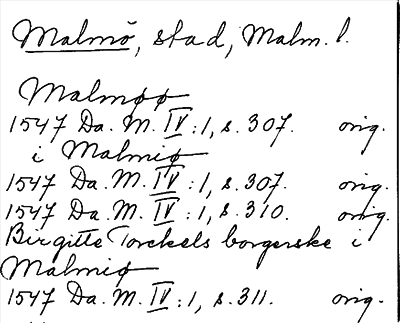 Malmö, stad, Malm. l.
Malmøø
1547 Da. M. IV:1, s. 307. orig.
i Malmiø
1547 Da. M. IV:1, s. 307. orig.
1547 Da. M. IV:1, s. 310. orig.
Birgitte Torckels borgerske i
Malmiø
1547 Da. M. IV:1, s. 311. orig.